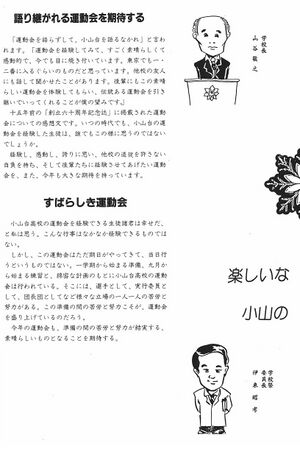 語り継がれる運動会を期待する
「運動会を語らずして、小山台を語るなかれ」と言わ
れます。「運動会を経験してみて、すごく素晴らしくて
感動的で、今でも目に焼き付いています。東京でも一・
二番に入るぐらいのものだと思っています。他校の友人
にも話して聞かせたことがあります。後輩にもこの素晴
らしい運動会を体験してもらい、伝統ある運動会を引き
継いでいってくれることが僕の望みです。」
十五年前の「創立六十周年記念誌」に掲載された運動
会についての感想文です。いつの時代でも、小山台の運
動会を経験した生徒は、誰でもこの様に思うのではない
でしょうか。
経験し、感動し、誇りに思い、他校の追従を許さない
自負を持ち、そして後輩たちに経験させてあげたい運動
会を、また、今年も大きな期待を持っています。
学校長
山谷敬之
すばらしき運動会
小山台高校の運動会を経験できる生徒諸君は幸せだ、
と私は思う。こんな行事はなかなか経験できるものでは
ない。
しかし、この運動会はただ期日がやってきて、当日行
うというものではない。一学期から始まる準備、九月か
ら始まる練習と、綿密な計画のもとに小山台高校の運動
会は行われている。そこには、選手として、実行委員と
して、団長団としてなど様々な立場の一人一人の苦労と
努力がある。この準備の間の苦労と努力こそが、運動会
を盛り上げているのだろう。
今年の運動会も、準備の間の苦労と努力が結実する、
素晴らしいものとなることを期待する。
学校祭
委員長
伊東昭彦
楽しいな
小山の